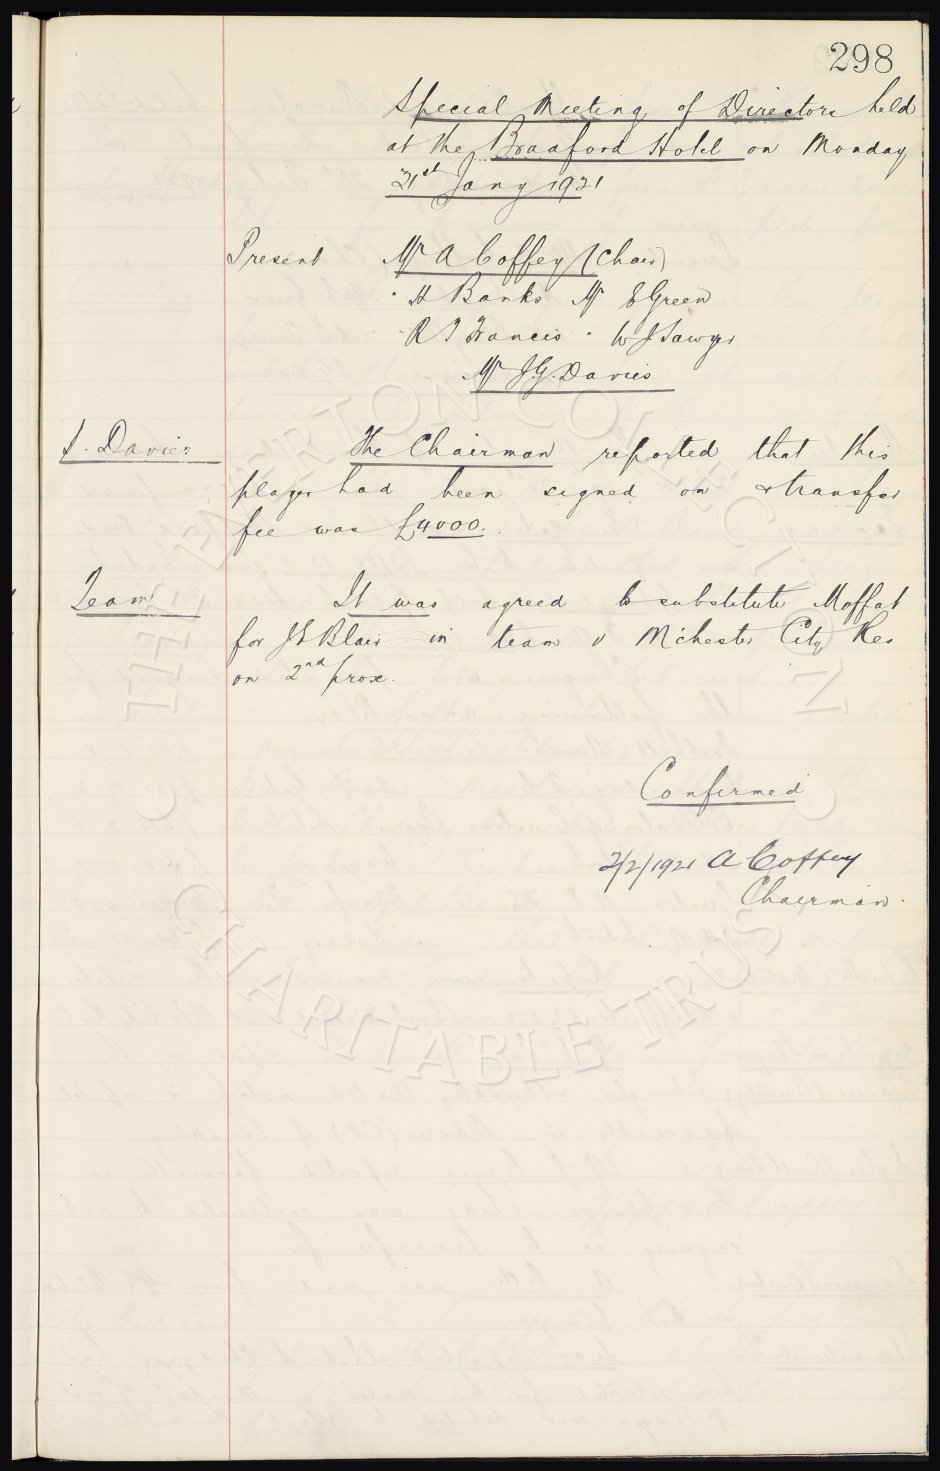 298
Special Meeting of Directors held
at the Bradford Hotel on Monday
31st Jany 1921
Present Mr A Coffey (Chair)
" H Banks Mr E Green
" R T Francis " W J Sawyer
Mr J.G. Davies
S. Davies The Chairman reported that this
player had been signed on & transfer
fee was £4000.
Team It was agreed to substitute Moffat
for J E Blair in team v M'chester City Res
on 2nd prox.
Confirmed
2/2/1921 A Coffey
Chairman.
© THE EVERTON COLLECTION ©
CHARITABLE TRUST